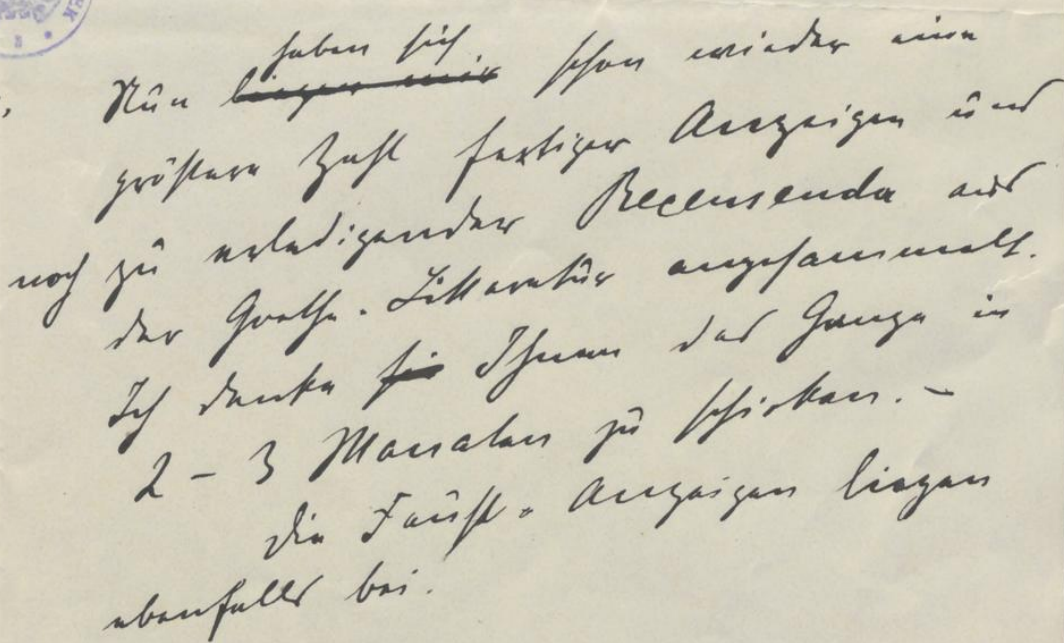 haben sich
Nun liegen mir schon wieder eine
größere Zahl fertiger Anzeigen und
noch zu erledigender Recensenda aus
der Goethe-Litteratur angesammelt.
Ich denke sie Ihnen das Ganze in
2 – 3 Monaten zu schicken. –
Die Faust-Anzeigen liegen
ebenfalls bei.